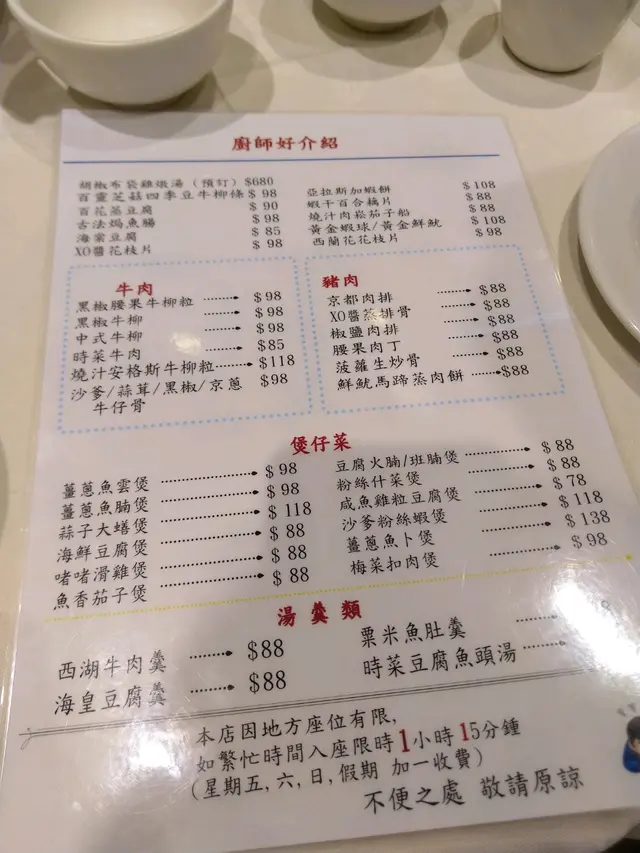 廚師好介紹
胡椒布袋雞燉湯（預訂）$680
百靈芝菇四季豆牛柳條 $ 98
百花蒸豆腐 $ 90
古法焗魚腸 $ 98
海棠豆腐 $ 85
XO醬花枝片 $ 98
亞拉斯加蝦餅 $ 108
蝦干百合藕片 $ 88
燒汁肉崧茄子船 $ 88
黃金蝦球/黃金鮮魷 $ 108
西蘭花花枝片 $ 98
牛肉
黑椒腰果牛柳粒 $ 98
黑椒牛柳 $ 98
中式牛柳 $ 98
時菜牛肉 $85
燒汁安格斯牛柳粒 $118
沙爹/蒜茸/黑椒/京蔥 $98
牛仔骨
豬肉
京都肉排 $88
XO醬蒸排骨 $88
椒鹽肉排 $88
腰果肉丁 $88
菠蘿生炒骨 $88
鮮魷馬蹄蒸肉餅 $88
煲仔菜
薑蔥魚雲煲 $ 98
薑蔥魚腩煲 $ 98
蒜子大鱔煲 $ 118
海鮮豆腐煲 $ 88
啫啫滑雞煲 $ 88
魚香茄子煲 $ 88
豆腐火腩/班腩煲 $ 88
粉絲什菜煲 $ 88
咸魚雞粒豆腐煲 $ 78
沙爹粉絲蝦煲 $ 118
薑蔥魚卜煲 $ 138
梅菜扣肉煲 $ 98
湯羹類
西湖牛肉羹 $88
海皇豆腐羹 $88
粟米魚肚羹
時菜豆腐魚頭湯
本店因地方座位有限,
如繁忙時間入座限時1小時15分鍾
(星期五,六,日,假期 加一收費)
不便之處 敬請原諒